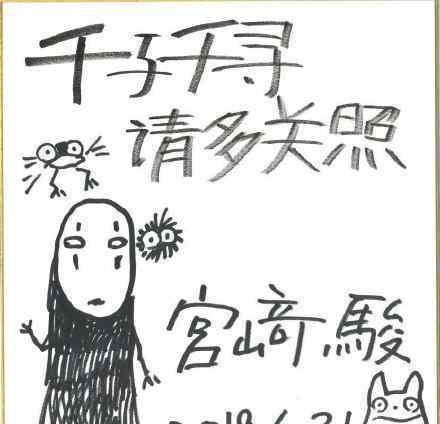 千与千寻
请多关照
宮﨑駿